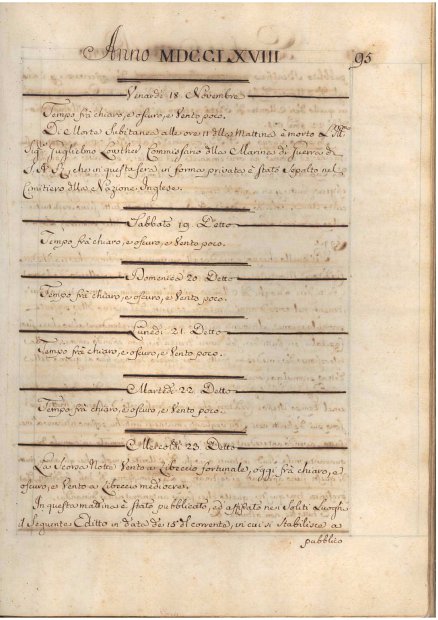 Anno MDCCLXVIII
95
Venardi 18 Novembre
Tempo frà chiaro, e oscuro, e Vento poco.
Di Morte Subitanea alle ore 11 dlla Mattina è morto
Sigr. Guglielmo Commissario dlla Marina di Guerra di
S. A. R. che in questa sera in forma privata è stato Sepolto nel
Cimitiero dlla Nazione Inglese.
Sabbato 19. Detto
Tempo frà chiaro, e oscuro, e Vento poco.
Domenica 20. Detto
Tempo frà chiaro, e oscuro, e Vento poco.
Lunedi 21. Detto
Tempo frà chiaro, e oscuro, e Vento poco.
Martedi 22. Detto
Tempo frà chiaro, e oscuro, e Vento poco.
Mercoldi 23. Detto
La Scorsa Notte Vento a Libeccio fortunale, oggi frà chiaro, e
oscuro, e Vento a Libeccio mediocre.
In questa mattina è stato pubblicato, ed affissato nei Soliti Luoghi
il Seguente Editto in data de 15 dl corrente, in cui si Stabilisce a
pubblico